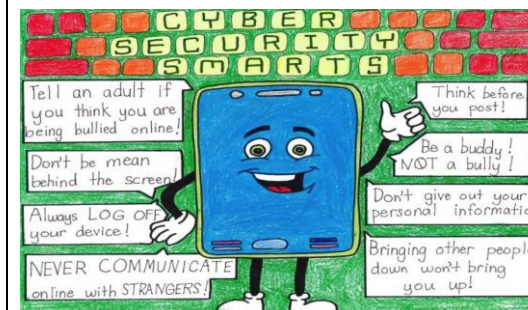 CYBER
SECURITY
SMARTS
Tell an adult if
you think you are
being bullied online!
Don't be mean
behind the screen!
Always LOG OFF
your device!
NEVER COMMUNICATE
online with STRANGERS!
Think before
you post!
Be a buddy!
NOT a bully!
Don't give out your
personal informatio
Bringing other people
down won't bring
you up!